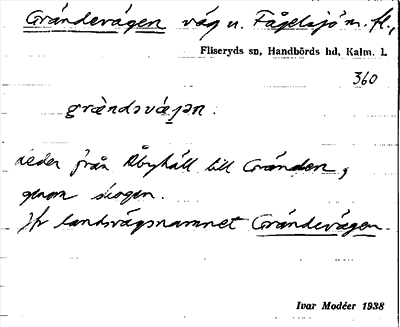 Grändevägen väg u. Fågelsjö m. fl.,
Fliseryds sn, Handbörds hd, Kalm. l.
360
gràndəvä́jən.
leder från Åbyhäll till Gränden,
genom skogen.
Jfr landsvägsnamnet Grändevägen.
Ivar Modéer 1938